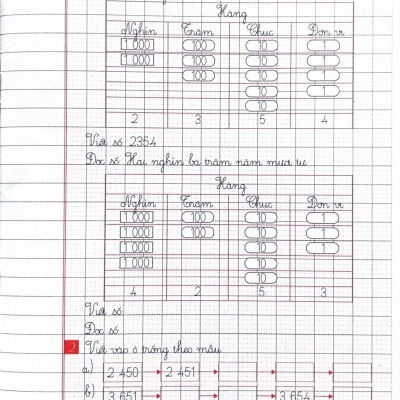 Hàng
Nghìn Trăm Chục Đơn vị
1 000 100 10 1
1 000 100 10 1
100 10 1
10 1
10
2 3 5 4
Viết số 2354
Đọc số Hai nghìn ba trăm năm mươi tư
Hàng
Nghìn Trăm Chục Đơn vị
1 000 100 10 1
1 000 100 10 1
1 000 10 1
1 000 10
10
4 2 5 3
Viết số
Đọc số
2 Viết vào ô trống theo mẫu
a) 2 450 2 451
b) 3 651 3 654